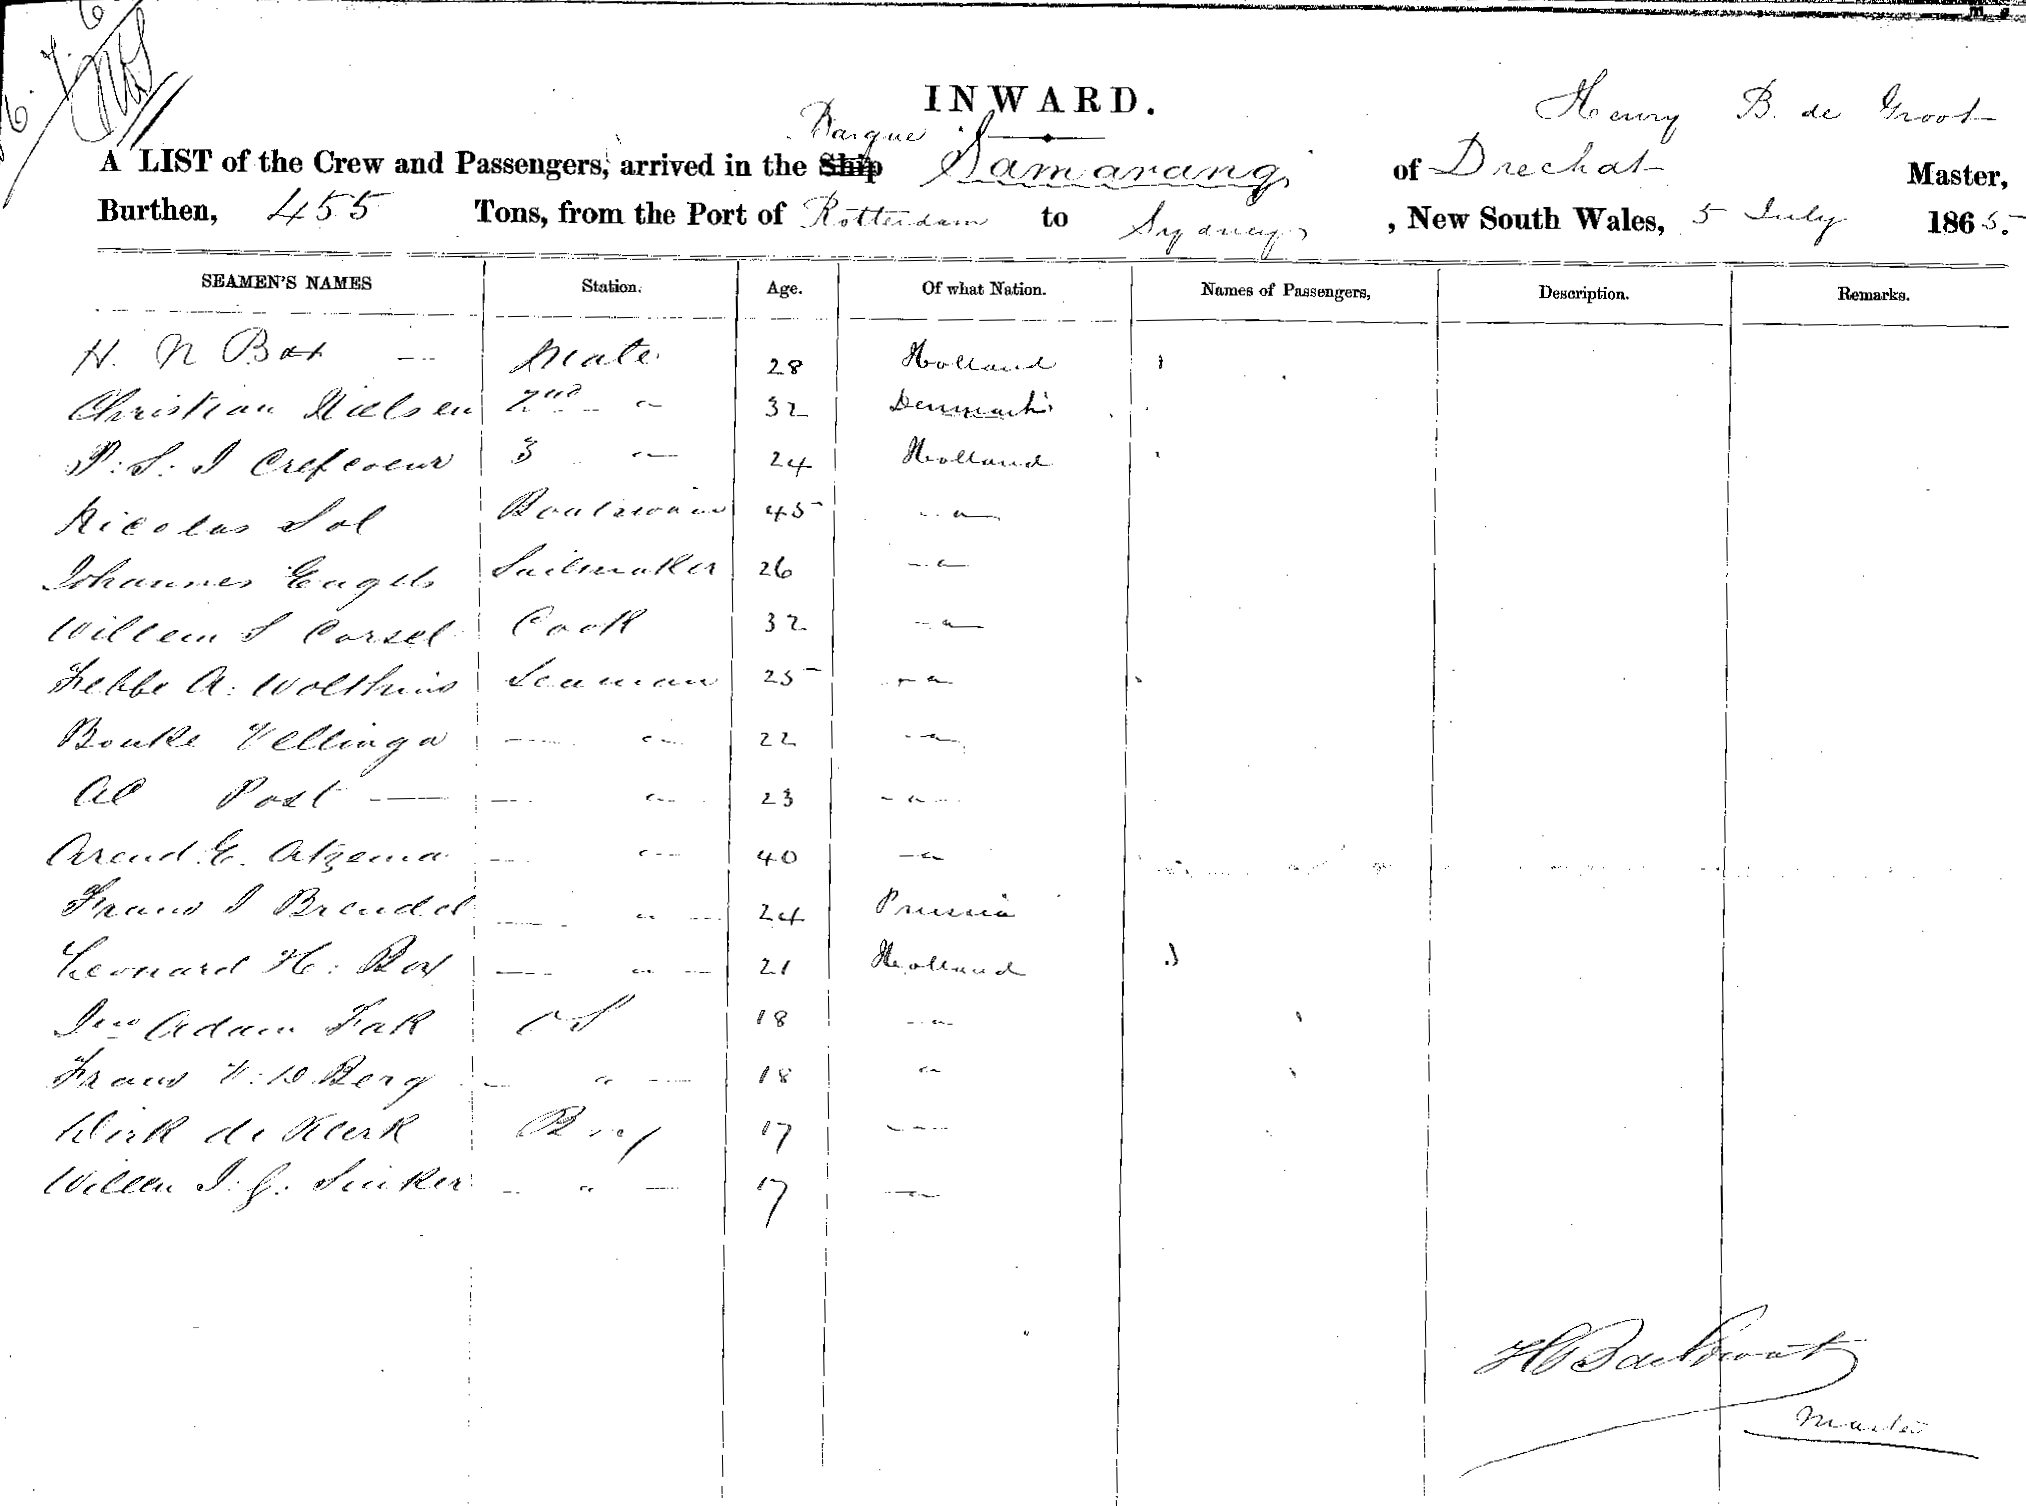 INWARD.
Henry B. de Groot
Barque
A LIST of the Crew and Passengers, arrived in the Ship Samarang of Drechat Master,
Burthen, 455 Tons, from the Port of Rotterdam to Sydney, New South Wales, 5 July 1865.
SEAMEN'S NAMES Station. Age. Of what Nation. Names of Passengers, Description. Remarks.
H. N Bax — Mate 28 Holland
Christian Nielsen 2nd " 32 Denmark
P: S: J Crefcoeur 3 " 24 Holland
Nicolas Sol Boatswain 45 "
Johannes Engels Sailmaker 26 "
Willem S Corsel Cook 32 "
Febbe A: Wolthuis Seaman 25 "
Bouke Vellinga — " 22 "
Al Post — — " 23 "
Arend E. Atzema — " 40 "
Frans J Brendel — " 24 Prussia
Leonard H: — " 21 Holland
Jno Adam Fak OS 18 "
Frans V: D. Berg — " 18 "
Dirk de Klerk Boy 17 —
Willem J. G. Sinker " 17 "
H B de Groot
Master